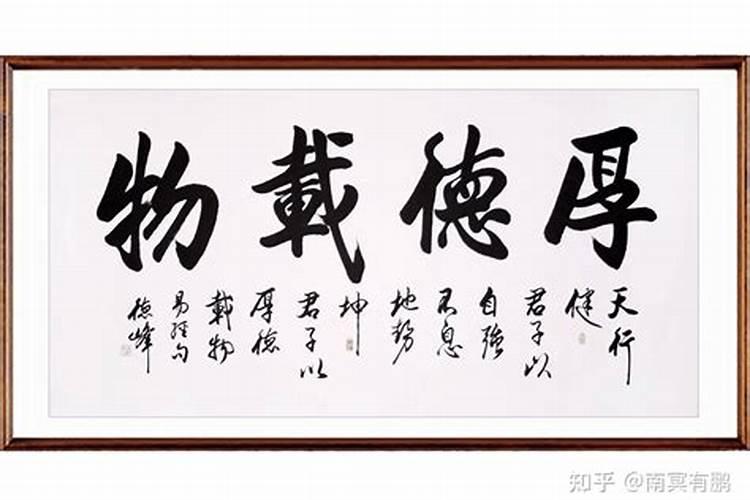 厚德載物
天行
健
君子以
自強
不息
地勢
坤
君子以
厚德
載物
易經句
德峰
知乎 @南冥有鹏